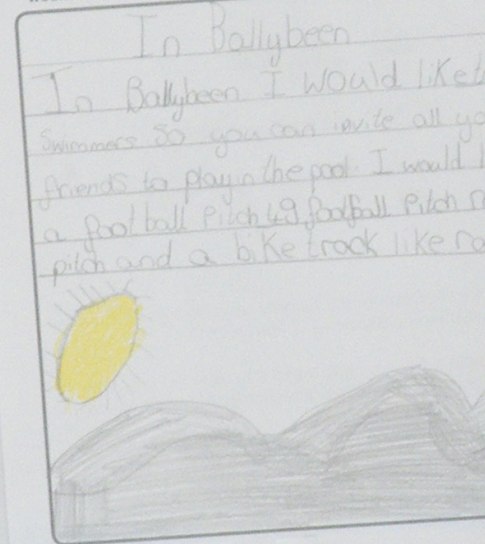 In Ballybeen
In Ballybeen I would like
Swimmers so you can invite all yo
friends to play in the pool. I would l
a football pitch 49 football pitch
pitch and a bike track like ra